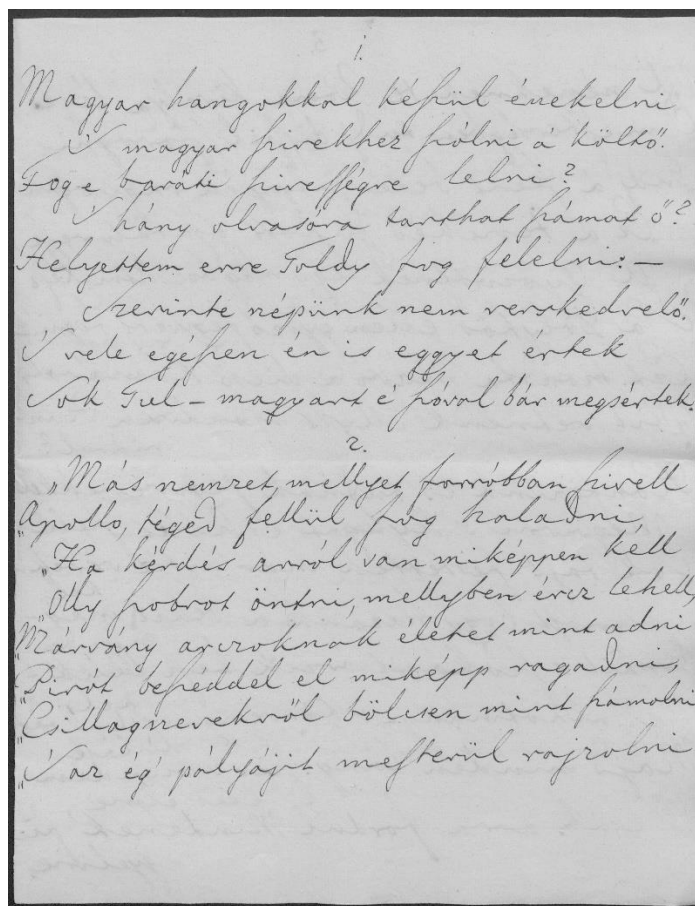 1.
Magyar hangokkal készül énekelni
S magyar szivekhez szólni á költő.
Fog é baráti szivességre lelni?
S hány olvasóra tarthat számot ő?
Helyettem erre Toldy fog felelni: –
Szerinte népünk nem verskedvelő.
S vele egészen én is eggyet értek
Sok Tul – magyart é szóval bár megsértek.
2.
„Más nemzet, mellyet forróbban szivell
„Apollo, téged fellül fog haladni,
„Ha kérdés arról van miképpen kéll
„Olly szobrot öntni, mellyben ércz lehell,
„Márvány arczoknak életet mint adni
„Birót beszéddel el miképp ragadni,
„Csillagnevekről bölcsen mint számolni
„S az ég' pályájit mesterül rajzolni